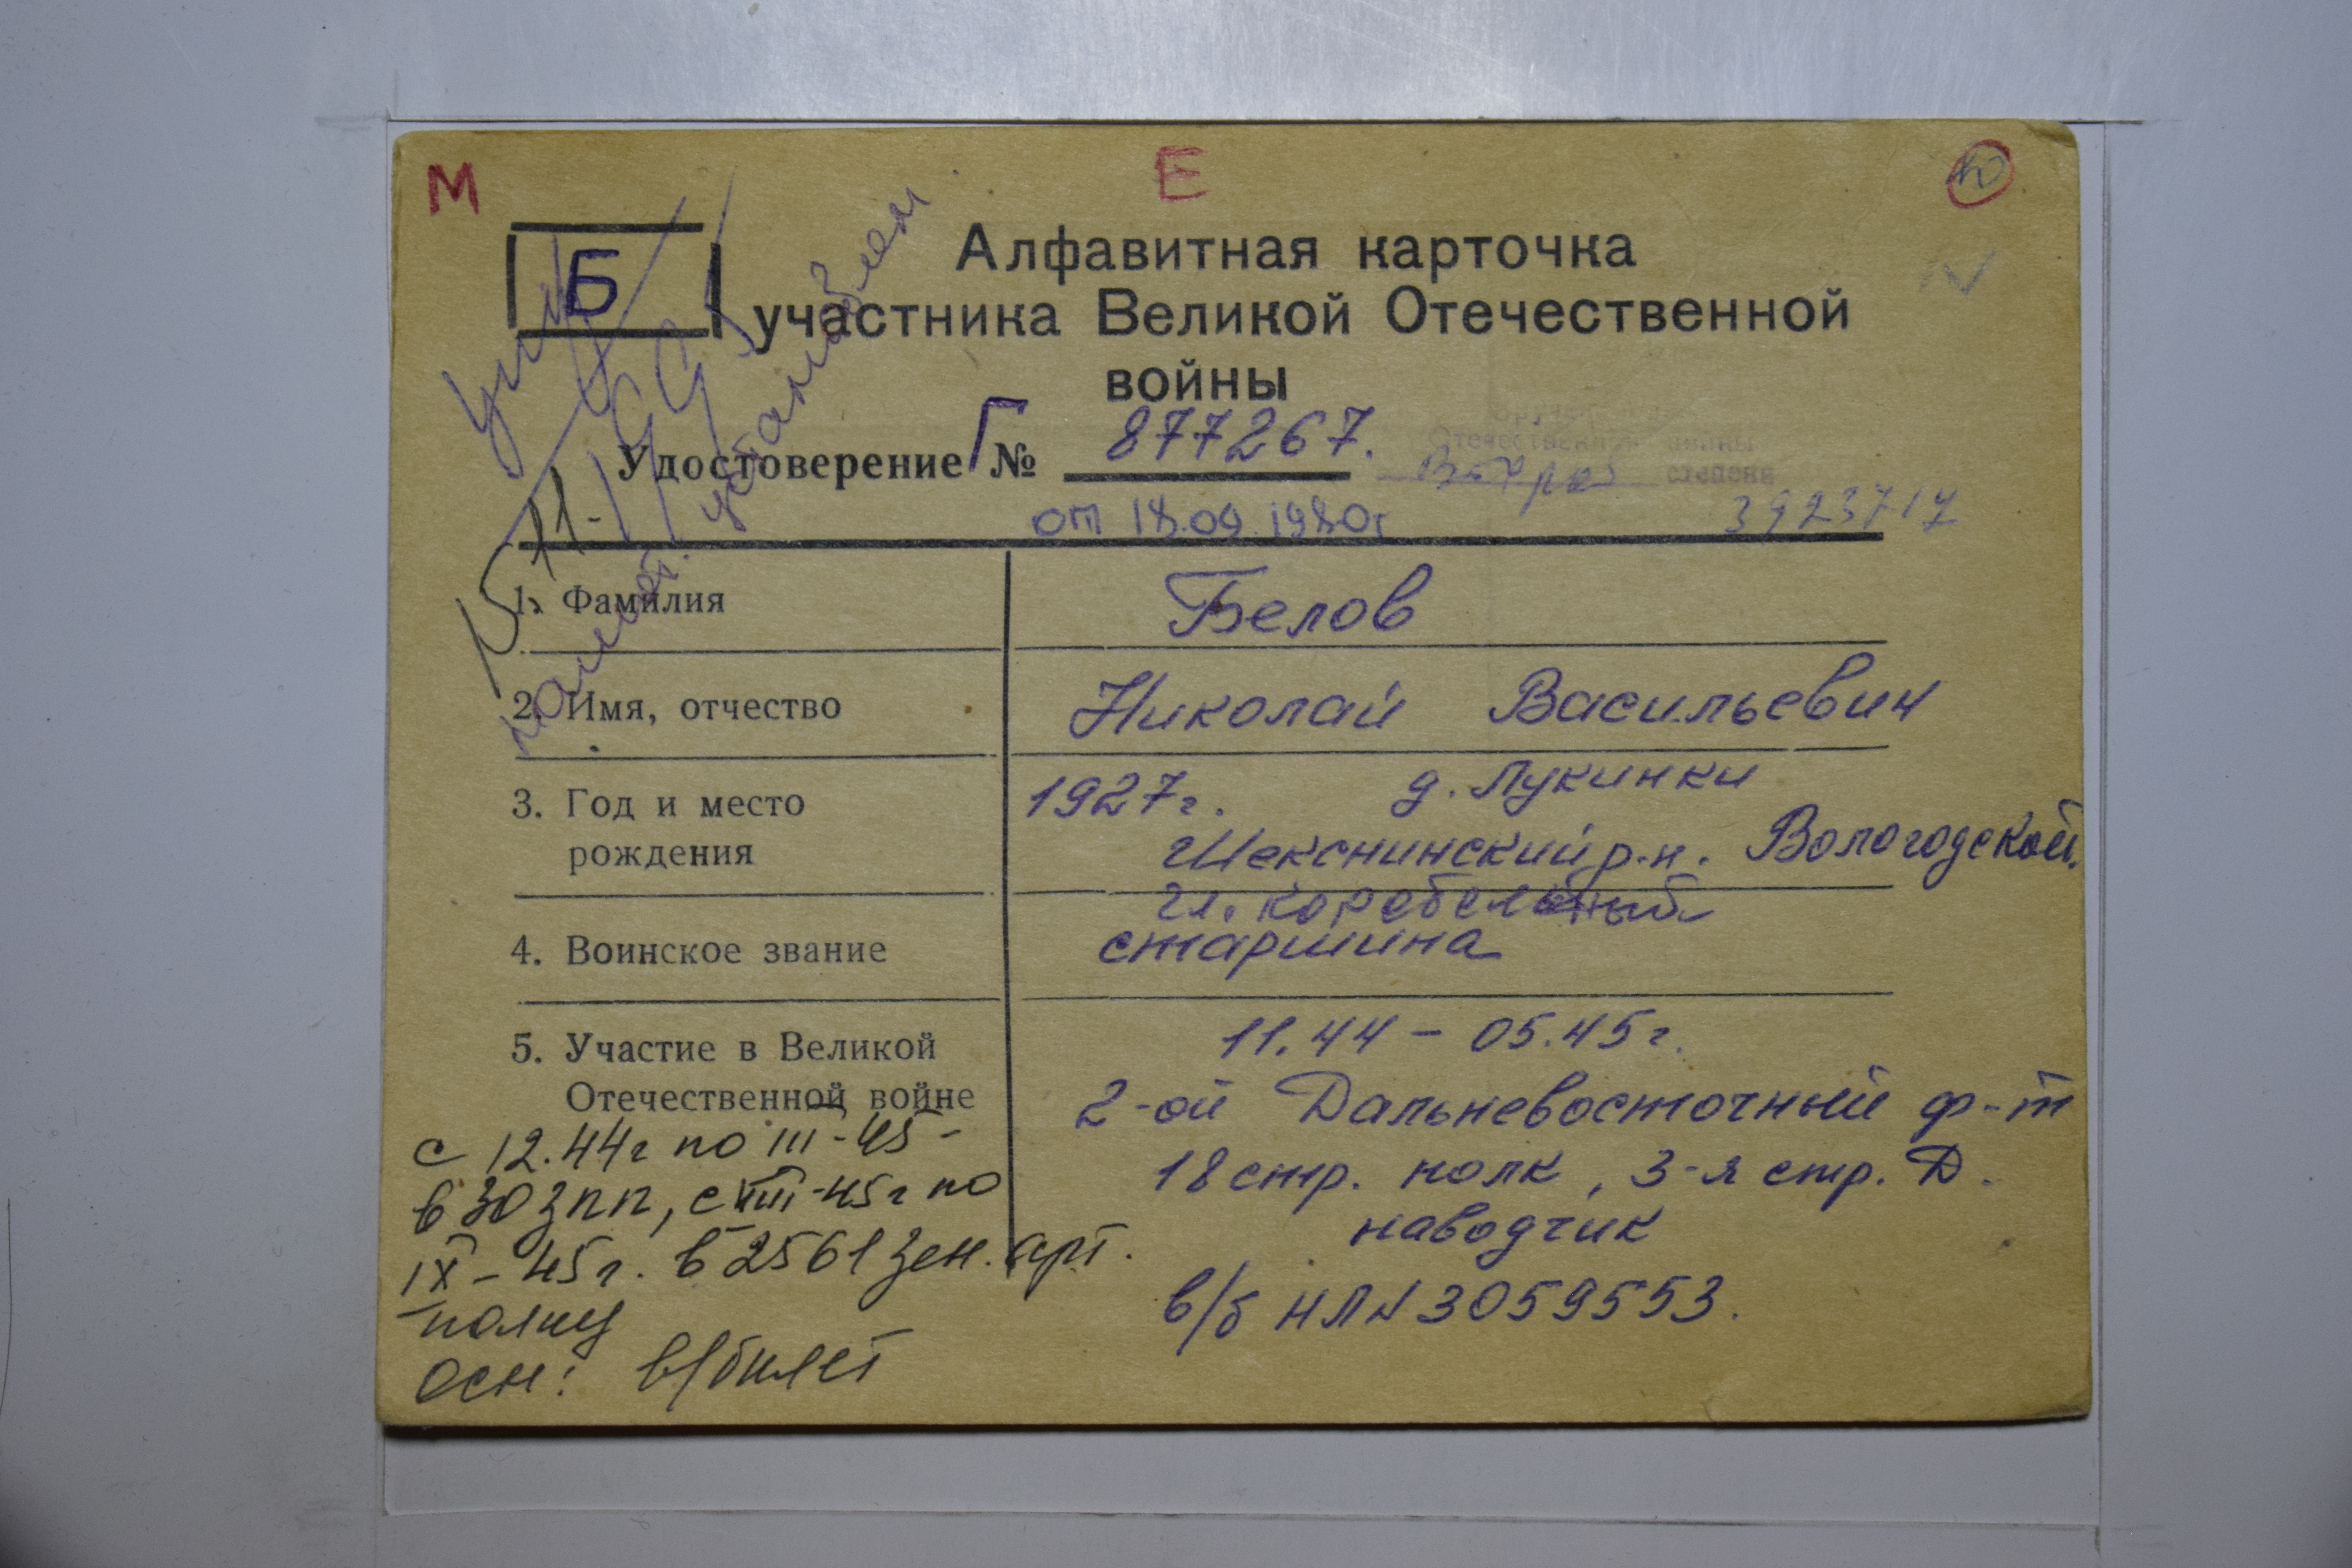 М
Е
Ю
Б
Алфавитная карточка
участника Великой Отечественной
войны
Удостоверение Г № 877267.
Отечественной войны
Второй степени
от 18.09.1980г
3923717
15 11-
памят. установлен.
1. Фамилия
Белов
2. Имя, отчество
Николай Васильевич
3. Год и место
рождения
1927г. д. Лукинки
Шекснинский р-н. Вологодской.
4. Воинское звание
гл. корабельный
старшина
5. Участие в Великой
Отечественной войне
11.44 – 05.45г.
2-ой Дальневосточный ф-т
18 стр. полк, 3-я стр. Д.
наводчик
в/б НЛ № 3059553.
с 12.44г по III-45-
в 30 зпп, с VIII-45г по
IX-45г. в 2561 зен. арт.
полку
осн: в/билет